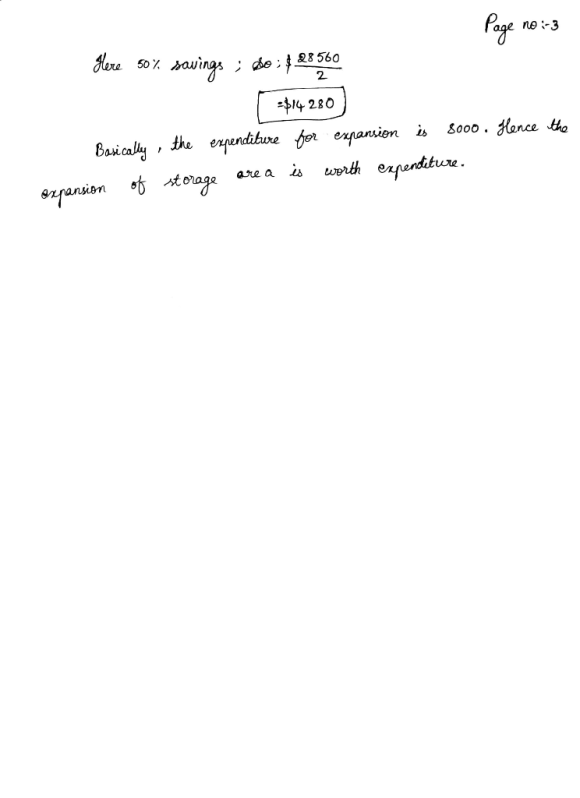 Page no :-3
Here 50% savings ; so : $ 28560
2
=$14280
Basically , the expenditure for expansion is 8000 . Hence the
expansion of storage area is worth expenditure .